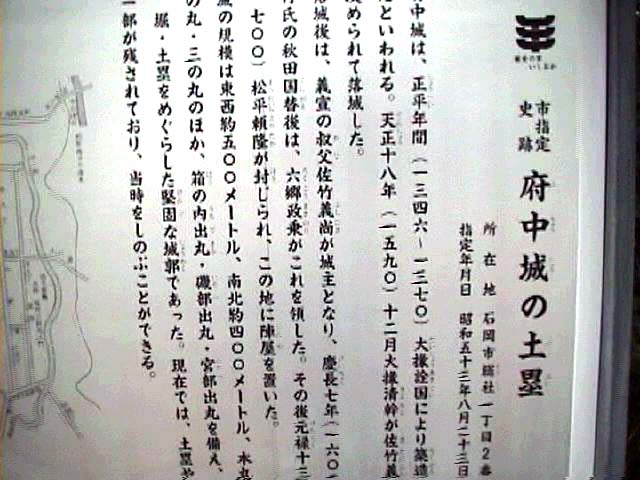 歴史の里
いしおか
市指定
史跡
府中城の土塁
所在地 石岡市総社一丁目2番
指定年月日 昭和五十三年八月二十三日
府中城は、正平年間（一三四六～一三七〇）大掾詮国により築造
たといわれる。天正十八年（一五九〇）十二月大掾清幹が佐竹義
攻められて落城した。
落城後は、義宣の叔父佐竹義尚が城主となり、慶長七年（一六〇
氏の秋田国替後は、六郷政乗がこれを領した。その後元禄十三
七〇〇）松平頼隆が封じられ、この地に陣屋を置いた。
城の規模は東西約五〇〇メートル、南北約四〇〇メートル、本丸
の丸・三の丸のほか、箱の内出丸・磯部出丸・宮部出丸を備え、
堀・土塁をめぐらした堅固な城郭であった。現在では、土塁や
一部が残されており、当時をしのぶことができる。